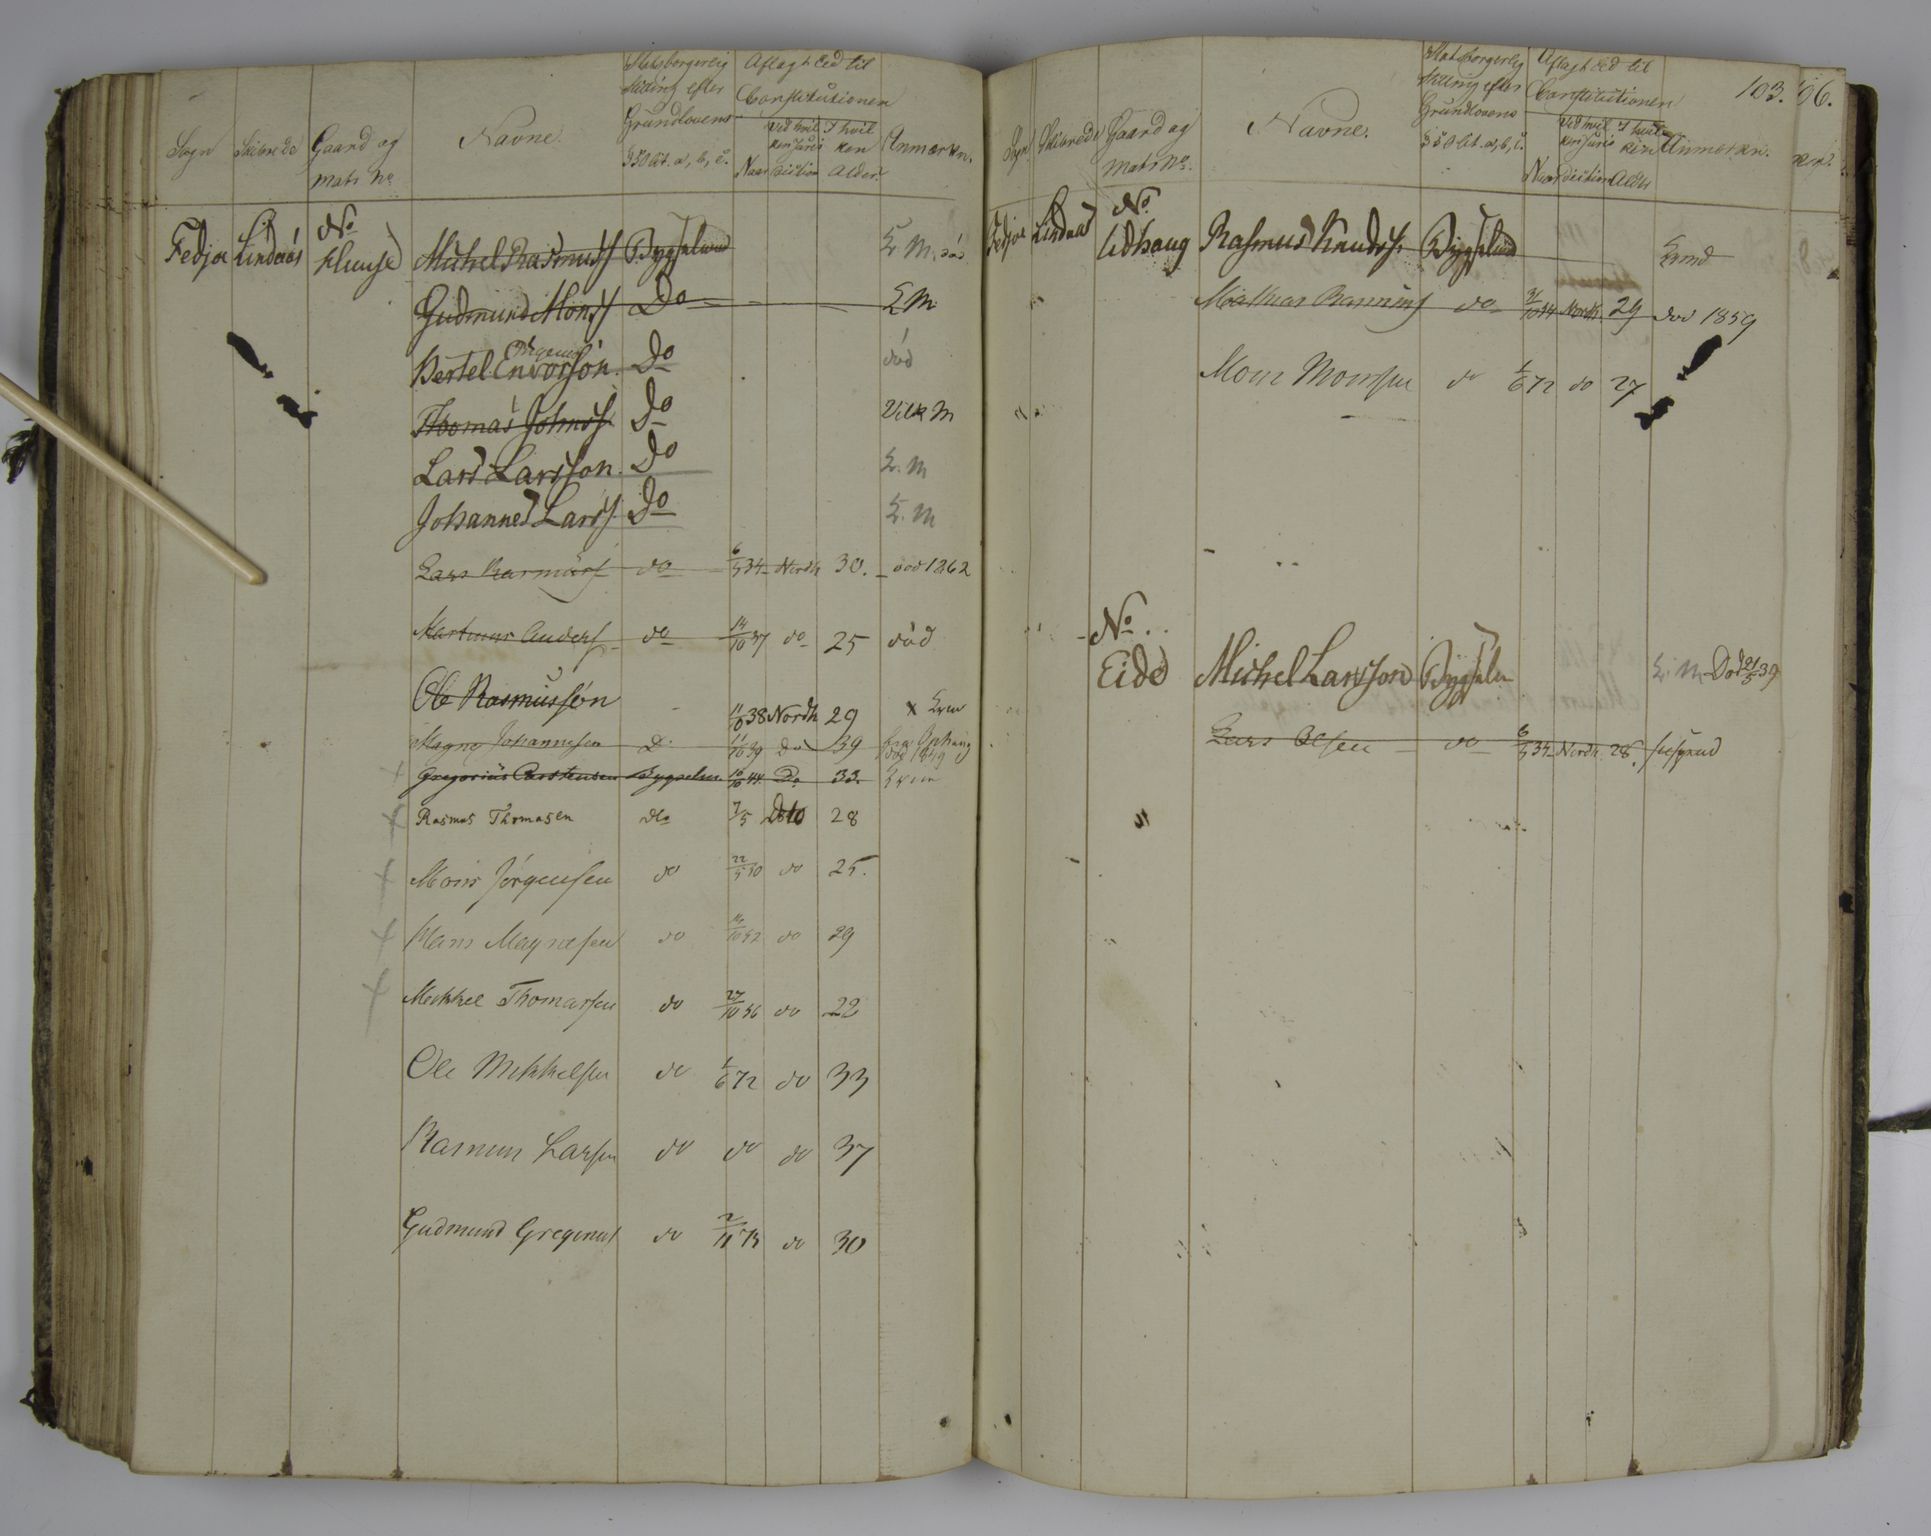 Sogn Skibrede Gaard og Mats No Navne. Statsborgerlig Stilling efter Grundlovens § 50 lit. a, b, c. Aflagt Eed til Constitutionen Naar Ved hvilken Jurisdiction I hvilken Alder. Anmærkn.
Fedjoe Lindaas No
Michel Rasmuss Bygselmd død
Gudmund Monss Do
Bertel Endorsön Do død
Thomas Johnss Do
Lars Larsson Do
Johannes Larss Do
Lars Rasmuss do 6/5 34 Nordh 30. død 1862
Martinus Anders do 14/10 37 do 25 død
Ole Rasmussön 38 Nordh 29
Magne Johannesen D: 11/10 39 do 39
Gregorius Carstensen Bygselm 16/10 44 Do 33.
Rasmus Thomasen do 7/5 Dito 28
Mons Jörgensen do 22/5 50 do 25.
Hans Magnesen do 52 do 29
Mekkel Thomassen do 27/10 56 do 22
Ole Mekkelsen do 1/6 72 do 33
Rasmus Larsen do do do 37
Gudmund Gregorius do 2/11 73 do 30
103. 106.
Sogn Skibrede Gaard og Mats No. Navne. Statsborgerlig Stilling efter Grundlovens § 50 lit. a, b, c. Aflagt Eed til Constitutionen Naar Ved hvilken Jurisdiction I hvilken Alder Anmærkn.
Fedjoe Lindaas No
Udhaug Rasmus Knudss. Bygselmd
Mathias do Nordh. 29 død 1859
Mons Monsen do 1/6 72 do 27
No.
Eide Michel Larsson Bygselm Död 21/5 39
Lars Olsen do 6/5 34 Nordh. 28.